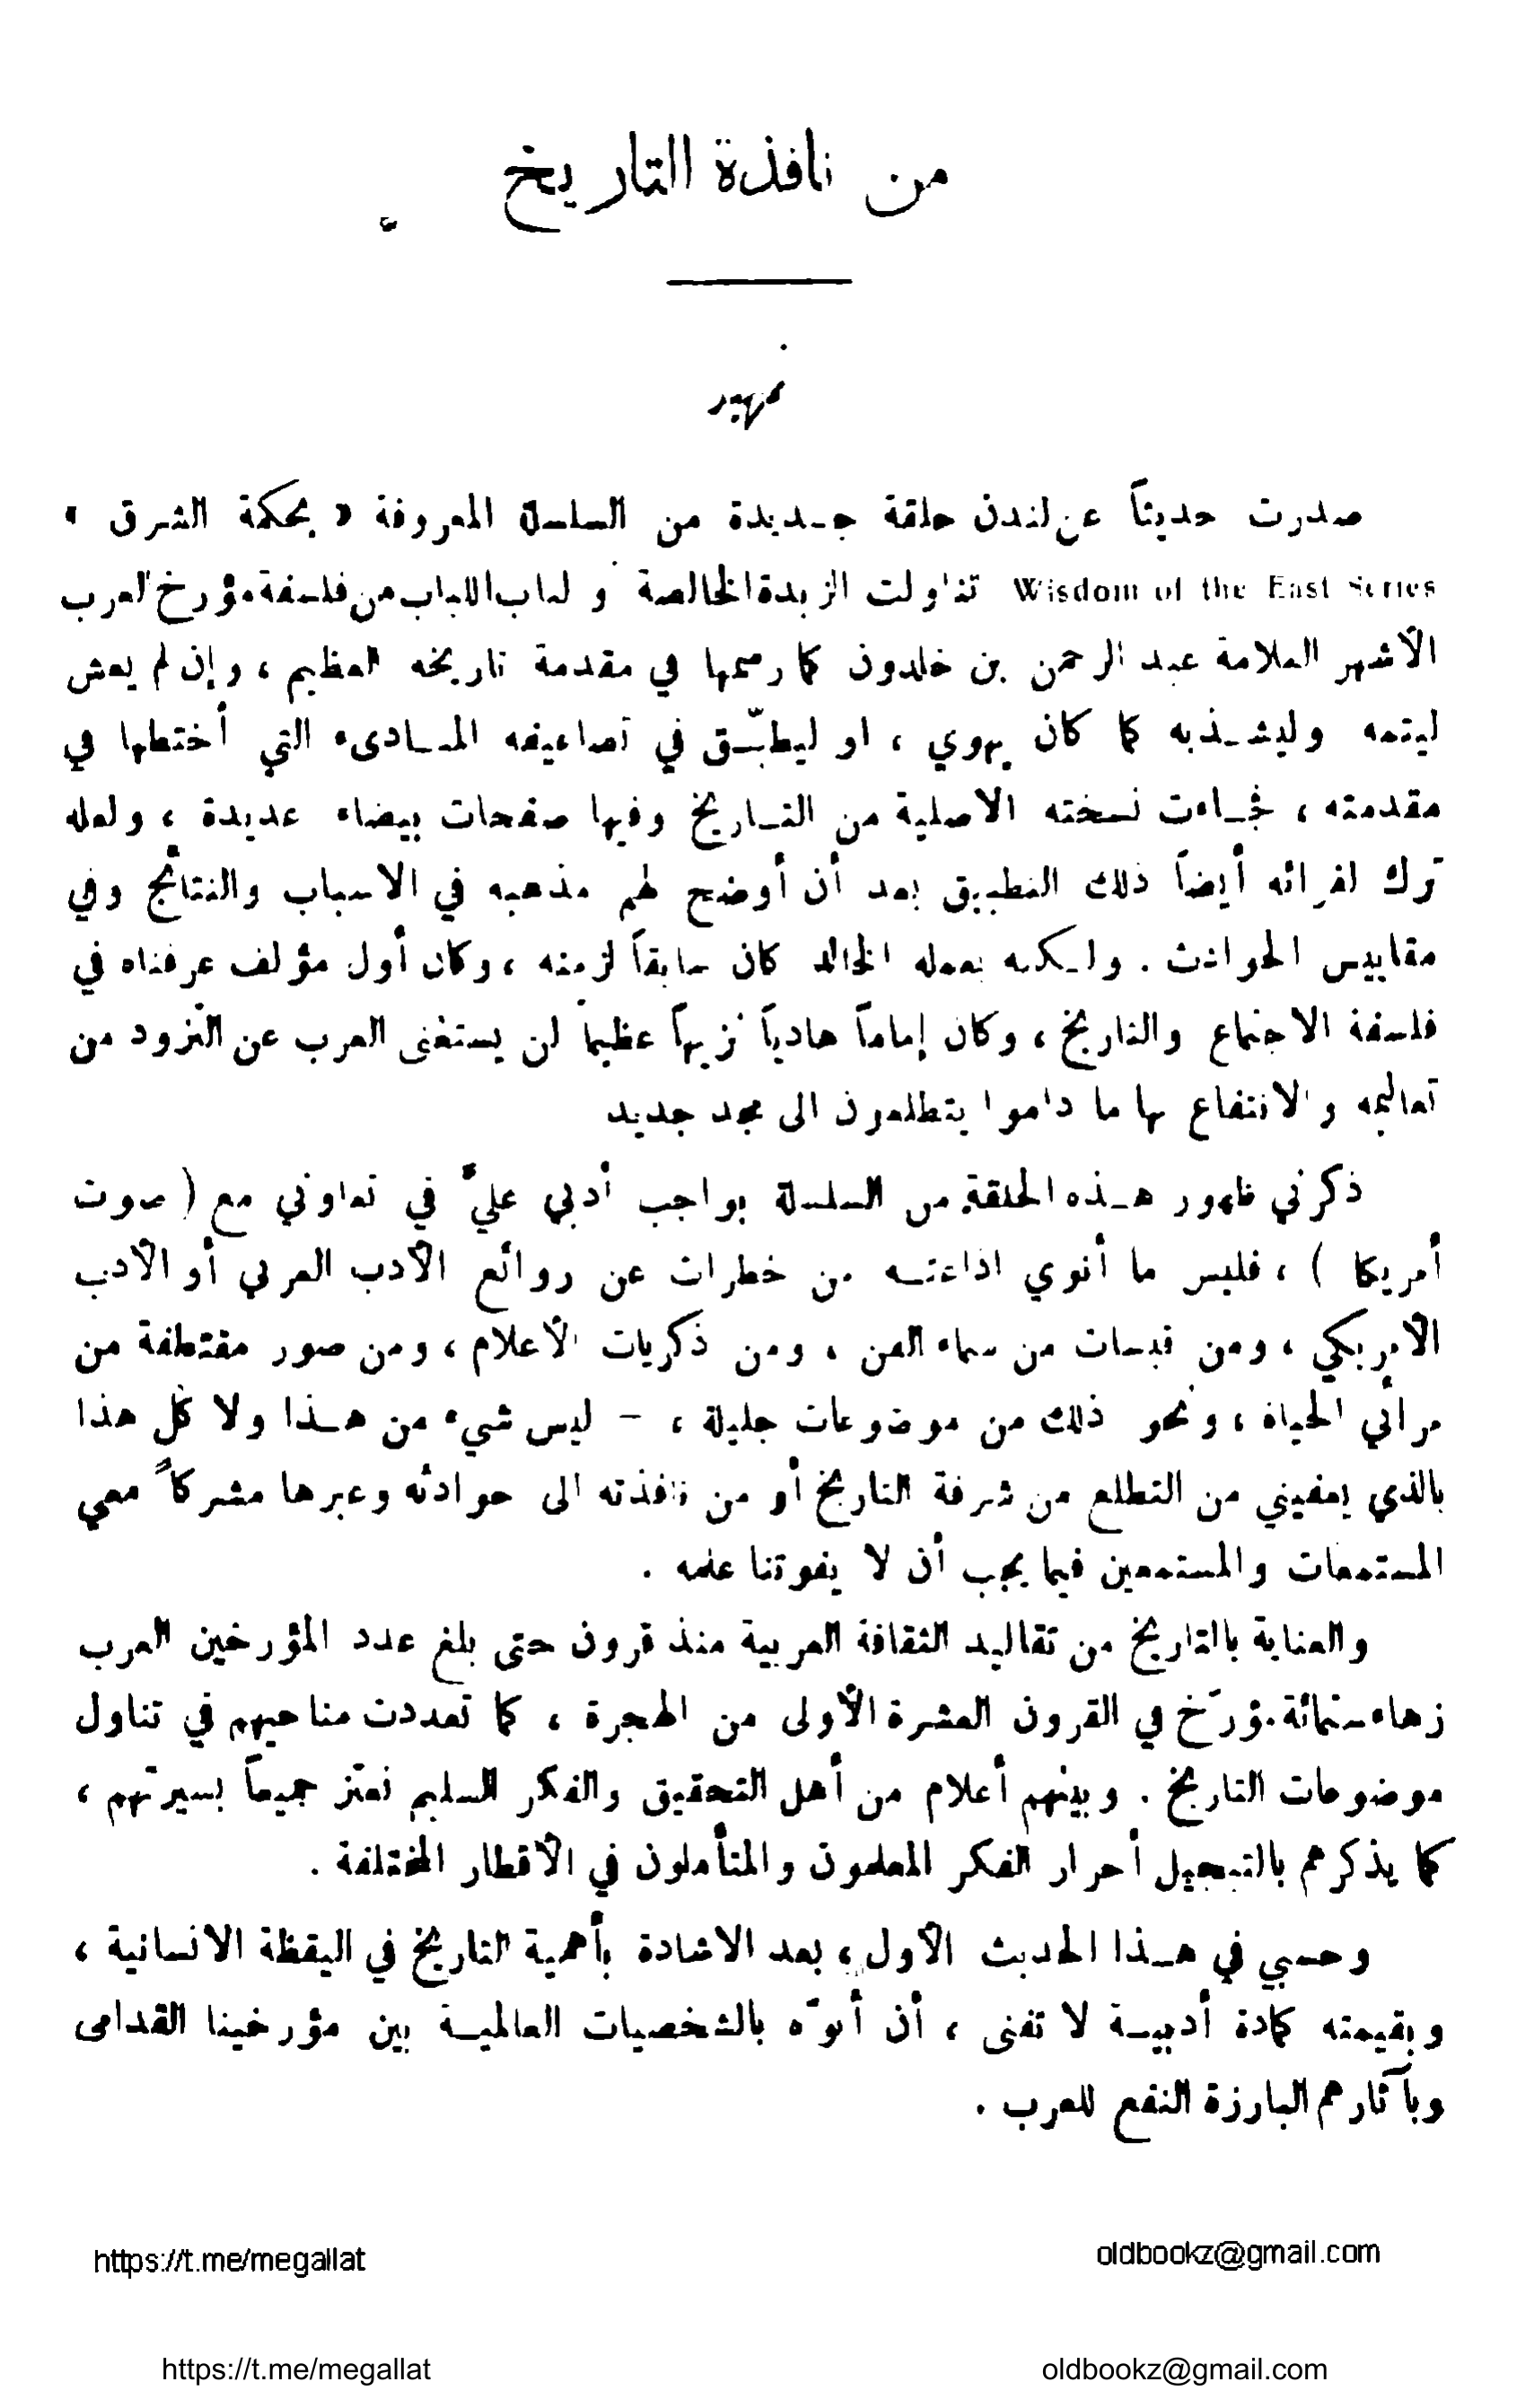 من نافذة التاريخ
تمهيد
صدرت حديثاً عن لندن حلقة جـديدة من السلسلة المعروفة « بحكمة الشرق »
Wisdom of the East Series تناولت الزبدة الخالصة و لباب اللباب من فلسفة مؤرخ العرب
الأشهر العلامة عبد الرحمن بن خلدون كما رسمها في مقدمة تاريخه العظيم ، وإن لم يعش
ليتمه وليشـذبه كما كان يهوي ، او ليطبّـق في تضاعيفه المبـادىء التي أختطها في
مقدمته ، فجـاءت نسخته الاصلية من التـاريخ وفيها صفحات بيضاء عديدة ، ولعله
ترك لقرائه أيضاً ذلك التطبيق بعد أن أوضح لهم مذهبه في الاسباب والنتائج وفي
مقاييس الحوادث . ولـكنه بعمله الخالد كان سابقاً لزمنه ، وكان أول مؤلف عرفناه في
فلسفة الاجتماع والتاريخ ، وكان إماماً هادياً نزيهاً عظيما لن يستغنى العرب عن التزود من
تعاليمه والانتفاع بها ما داموا يتطلعون الى مجد جديد
ذكرني ظهور هـذه الحلقة من السلسلة بواجب أدبي عليّ في تعاوني مع ( صوت
أمريكا ) ، فليس ما أنوي اذاعتـه من خطرات عن روائع الأدب العربي أو الأدب
الأمريكي ، ومن قبسات من سماء الفن ، ومن ذكريات الأعلام ، ومن صور مقتطفة من
مرأني الحياة ، ونحو ذلك من موضوعات جليلة ، - ليس شيء من هـذا ولا كل هذا
بالذي يعفيني من التطلع من شرفة التاريخ أو من نافذته الى حوادثه وعبرها مشركاً معي
المستمعات والمستمعين فيما يجب أن لا يفوتنا علمه .
والعناية بالتاريخ من تقاليد الثقافة العربية منذ قرون حتى بلغ عدد المؤرخين العرب
زهاء ستمائة مؤرّخ في القرون العشرة الأولى من الهجرة ، كما تعددت مناحيهم في تناول
موضوعات التاريخ . وبينهم أعلام من أهل التحقيق والفكر السليم نعتز جميعاً بسيرتهم ،
كما يذكرهم بالتبجيل أحرار الفكر المعلمون والمتأملون في الأقطار المختلفة .
وحسبي في هـذا الحديث الأول ، بعد الاشادة بأهمية التاريخ في اليقظة الانسانية ،
وبقيمته كمادة أدبيـة لا تفنى ، أن أنوّه بالشخصيات العالميـة بين مؤرخينا القدامى
وبآثارهم البارزة النفع للعرب .
https://t.me/megallat oldbookz@gmail.com
https://t.me/megallat oldbookz@gmail.com